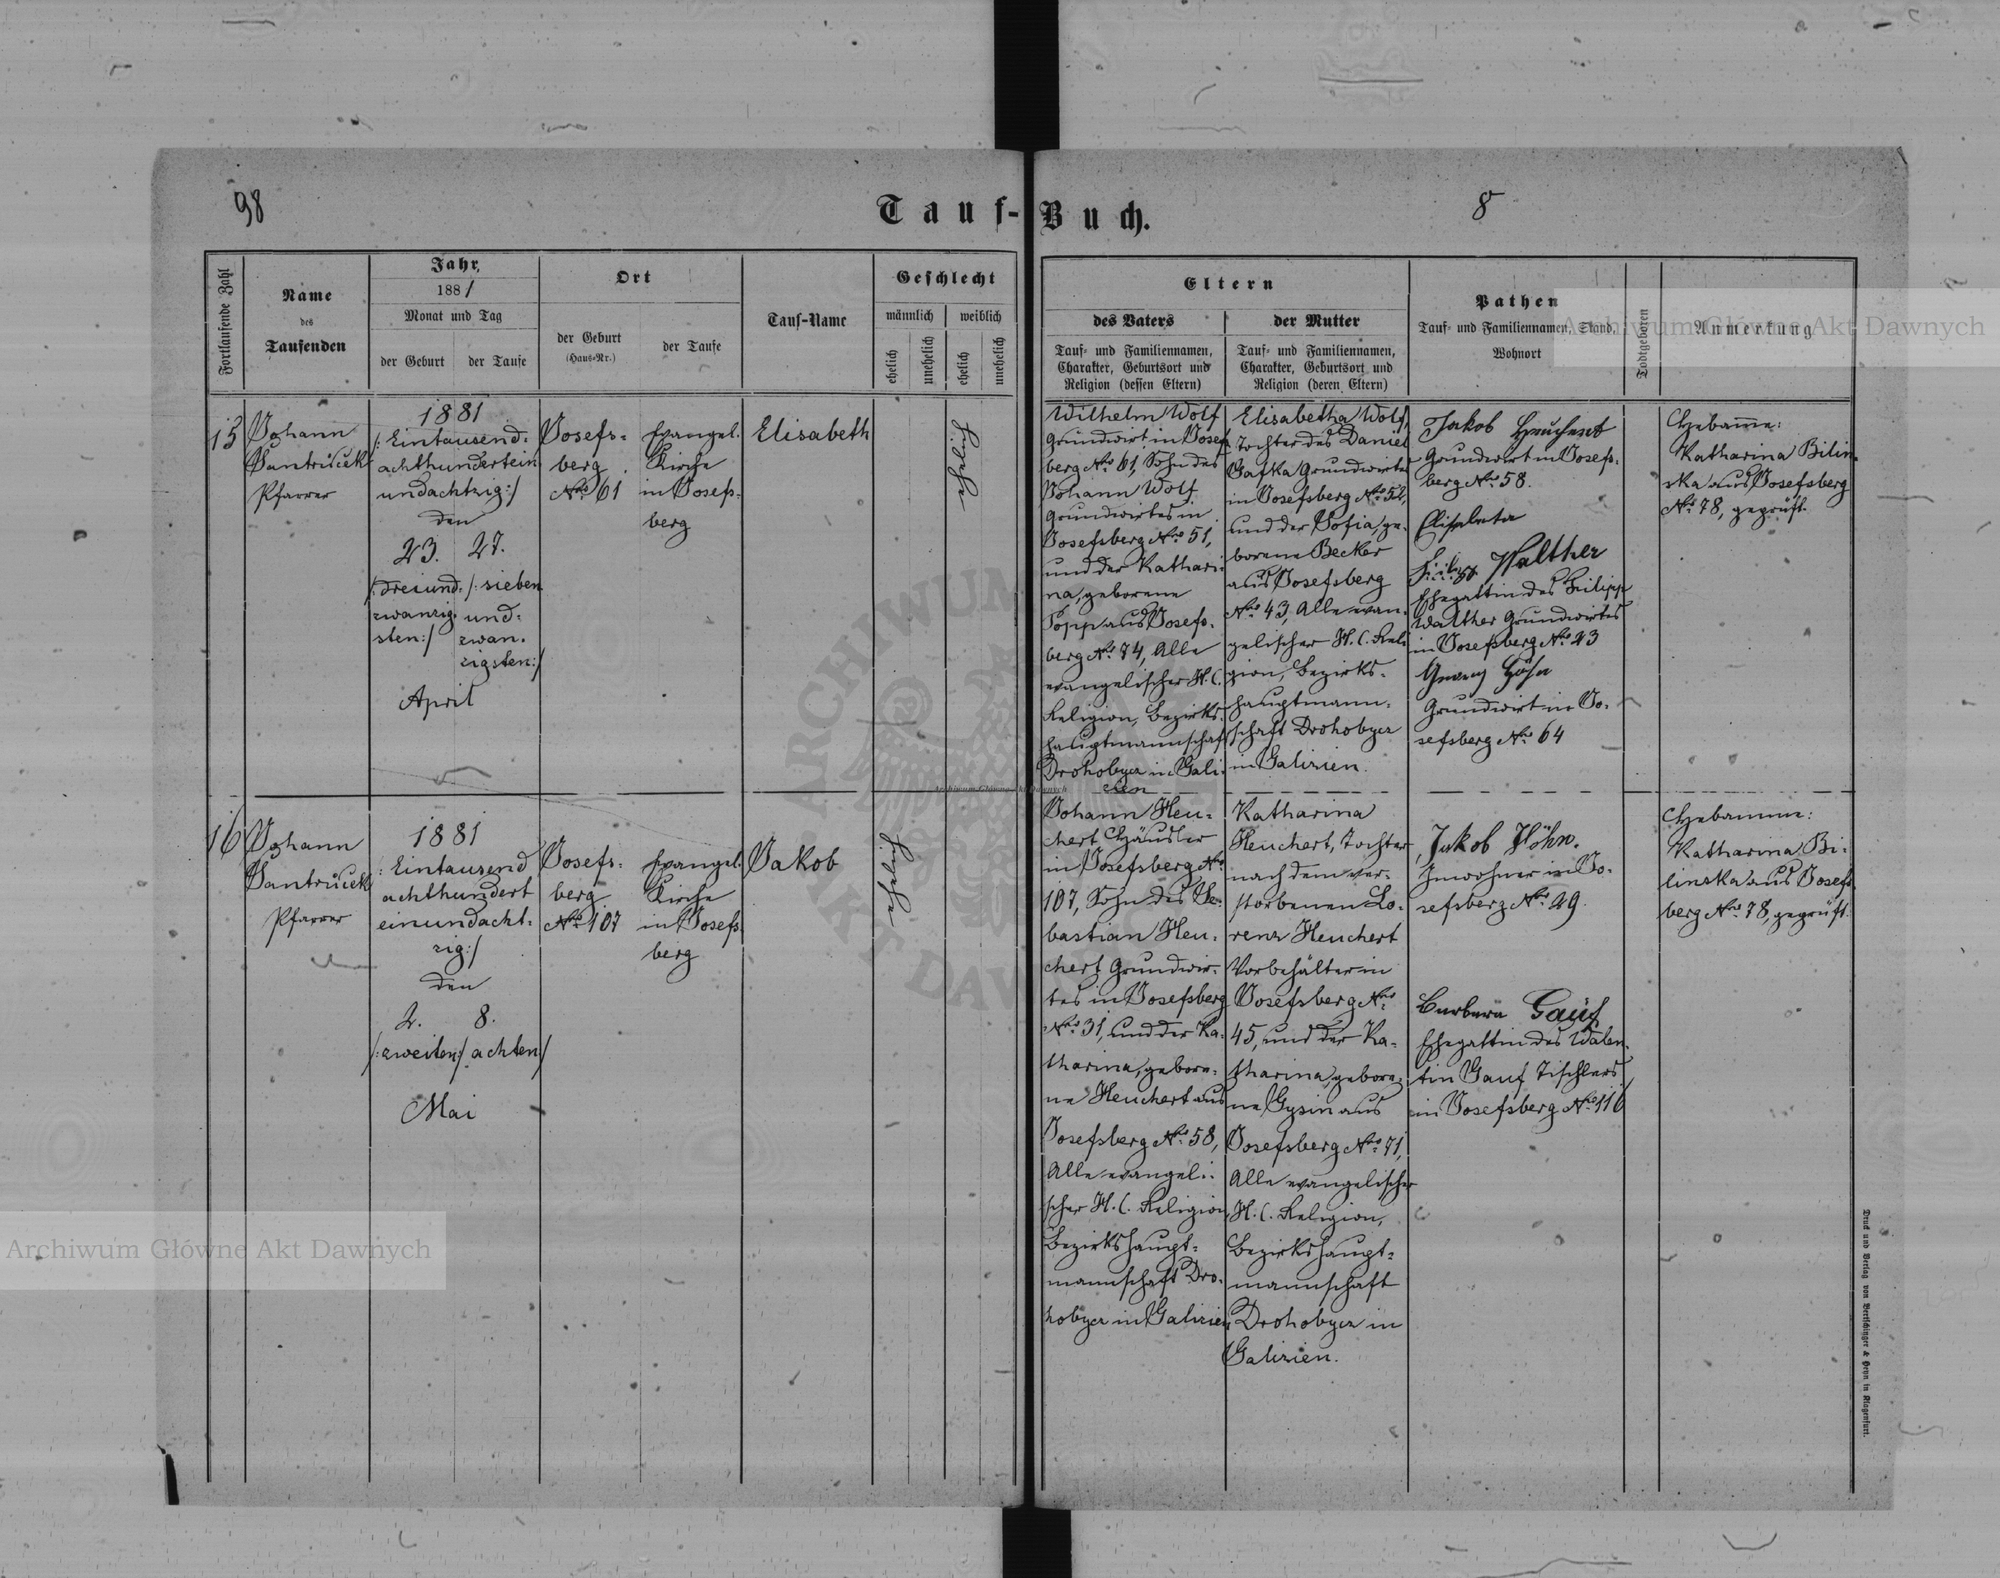 98
Tauf-Buch.
8
Fortlaufende Zahl
Name
des
Taufenden
Jahr,
1881
Monat und Tag
der Geburt
der Taufe
Ort
der Geburt
(Haus-Nr.)
der Taufe
Tauf-Name
Geschlecht
männlich
weiblich
ehelich
unehelich
ehelich
unehelich
Eltern
des Vaters
Tauf- und Familiennamen,
Charakter, Geburtsort und
Religion (dessen Eltern)
der Mutter
Tauf- und Familiennamen,
Charakter, Geburtsort und
Religion (deren Eltern)
Pathen
Tauf- und Familiennamen, Stand,
Wohnort
Todtgeboren
Anmerkung
15
Johann
Jantrucek
Pfarrer
1881
/: Eintausend-
achthundertein
undachtzig :/
den
23.
27.
/: dreiund-
zwanzig-
sten :/
/: sieben
und-
zwan-
zigsten :/
April
Josefs-
berg
Nro 61
Evangel.
Kirche
in Josefs-
berg
Elisabeth
ehelich
Wilhelm Wolf
Grundwirt in Josefs
berg Nro 61, Sohn des
Johann Wolf
Grundwirtes in
Josefsberg Nro 51,
und der Kathari-
na, geborene
Popp aus Josefs-
berg Nro 74, Alle
evangelischer H.C.
Religion, Bezirks-
hauptmannschaft
Drohobycz in Gali-
zien
Elisabetha Wolf,
Tochter des Daniel
Gafka Grundwirtes
in Josefsberg Nro 52,
und der Sofia, ge-
borene Becker
aus Josefsberg
Nro 43, Alle evan-
gelischer H.C. Reli
gion, Bezirks-
hauptmann-
schaft Drohobycz
in Galizien.
Jakob Heuchert
Grundwirt in Josefs-
berg Nro 58.
Elisabeta
Walther
Ehegattin des Filipp
Walther Grundwirtes
in Josefsberg Nro 23
Georg Höhn
Grundwirt in Jo-
sefsberg Nro 64
Hebamme:
Katharina Bilin-
ska aus Josefsberg
Nro 78, geprüft.
16
Johann
Jantrucek
Pfarrer
1881
/: Eintausend
achthundert
einundacht-
zig :/
den
2.
8.
/: zweiten :/
achten :/
Mai
Josefs-
berg
Nro 107
Evangel.
Kirche
in Josefs-
berg
Jakob
ehelich
Johann Heu-
chert Häusler
in Josefsberg Nro
107, Sohn des Se-
bastian Heu-
chert Grundwir-
tes in Josefsberg
Nro 31, und der Ka-
tharina, gebore-
ne Heuchert aus
Josefsberg Nro 58,
Alle evangeli-
scher H.C. Religion,
Bezirkshaupt-
mannschaft Dro-
hobycz in Galizien
Katharina
Heuchert, Tochter
nach dem ver-
storbenen Lo-
renz Heuchert
Vorbehälter in
Josefsberg Nro
45, und der Ka-
tharina, gebore-
ne Gysin aus
Josefsberg Nro 71,
Alle evangelischer
H.C. Religion,
Bezirkshaupt-
mannschaft
Drohobycz in
Galizien.
Jakob Höhn.
Inwohner in Jo-
sefsberg Nro 49.
Barbara Gauf
Ehegattin des Walen-
tin Gauf Tischlers
in Josefsberg Nro 116
Hebamme:
Katharina Bi-
linska aus Josefs
berg Nro 78, geprüft.
Druck und Verlag von Bertschinger & Heyn in Klagenfurt.
Archiwum Główne Akt Dawnych
Archiwum Główne Akt Dawnych
Archiwum Główne Akt Dawnych